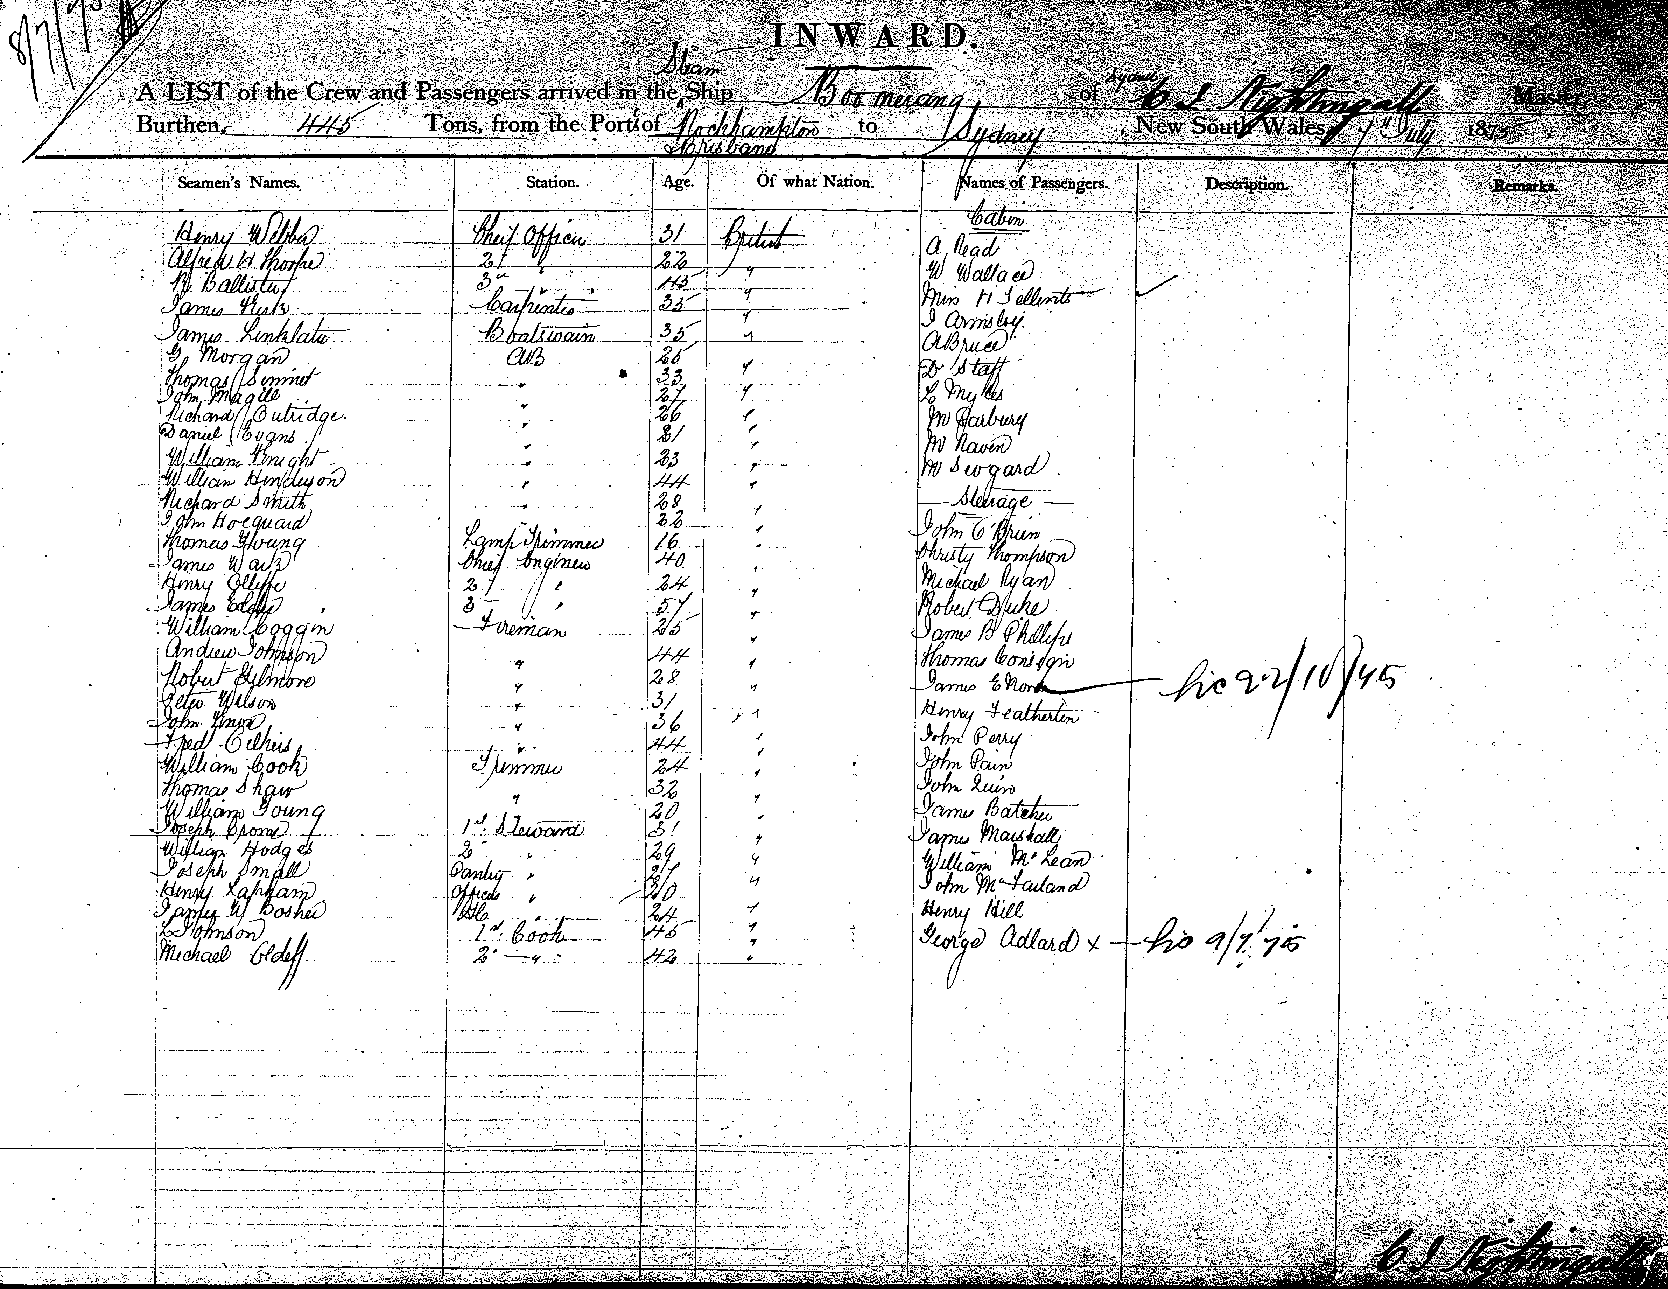 8/7/75
INWARD.
A LIST of the Crew and Passengers arrived in the Steam Ship Boomerang of Sydney C J Nightingall Master
Burthen, 445 Tons, from the Ports of Rockhampton & Brisbane to Sydney, New South Wales, 7th July 187
Seamen's Names. Station. Age. Of what Nation. Names of Passengers. Description. Remarks.
Cabin
Henry Webber Cheif Officer 31 British A Read
Alfred H Thorpe 2d " 22 " W Wallace
Ballister 3rd " " "
James Kirk Carpenter 35 " J Armsley
James Linklater Boatswain 35 " A Bruce
G. Morgan AB 25 D Staff
Thomas Simmet " 33 " L Myles
John Magill 27 "
Richard Outridge " 26 " M Harbury
Daniel Evans " "
William Knight " 23 " M Raven
William Henderson " 44 "
Richard Smith " 28 Steerage
John Hocquard 22 " John O'Brien
Thomas Young Lamp Trimmer 16 " Christy Thompson
James Wark Chief Engineer 40
Henry 2 " 24 " Michael Ryan
James Elder 3 " 57 " Robert Duke
William Coggin Fireman 25 " James B Phillips
Andrew Johnson " 44 " Thomas Consign
Robert Gilmore " 28 " James E North
Peter Wilson " 31 Henry Featherten
John " 36 "
Fred " 44 " John Perry
William Cook Trimmer 24 " John Pain
Thomas Shaw " 32 " John Quin
William Young 20 " James Batcher
Joseph Crome 1st Steward 31 " James Marshall
William Hodges 2 " 29 " William McLean
Joseph Small Pantry " " John McFarland
Henry Lapham Officers " 20
James W Bosher " 24 " Henry Hill
L Johnson 1st Cook 45 " George Adlard x 9/7/75
Michael 2 " 42 "
C J Nightingall